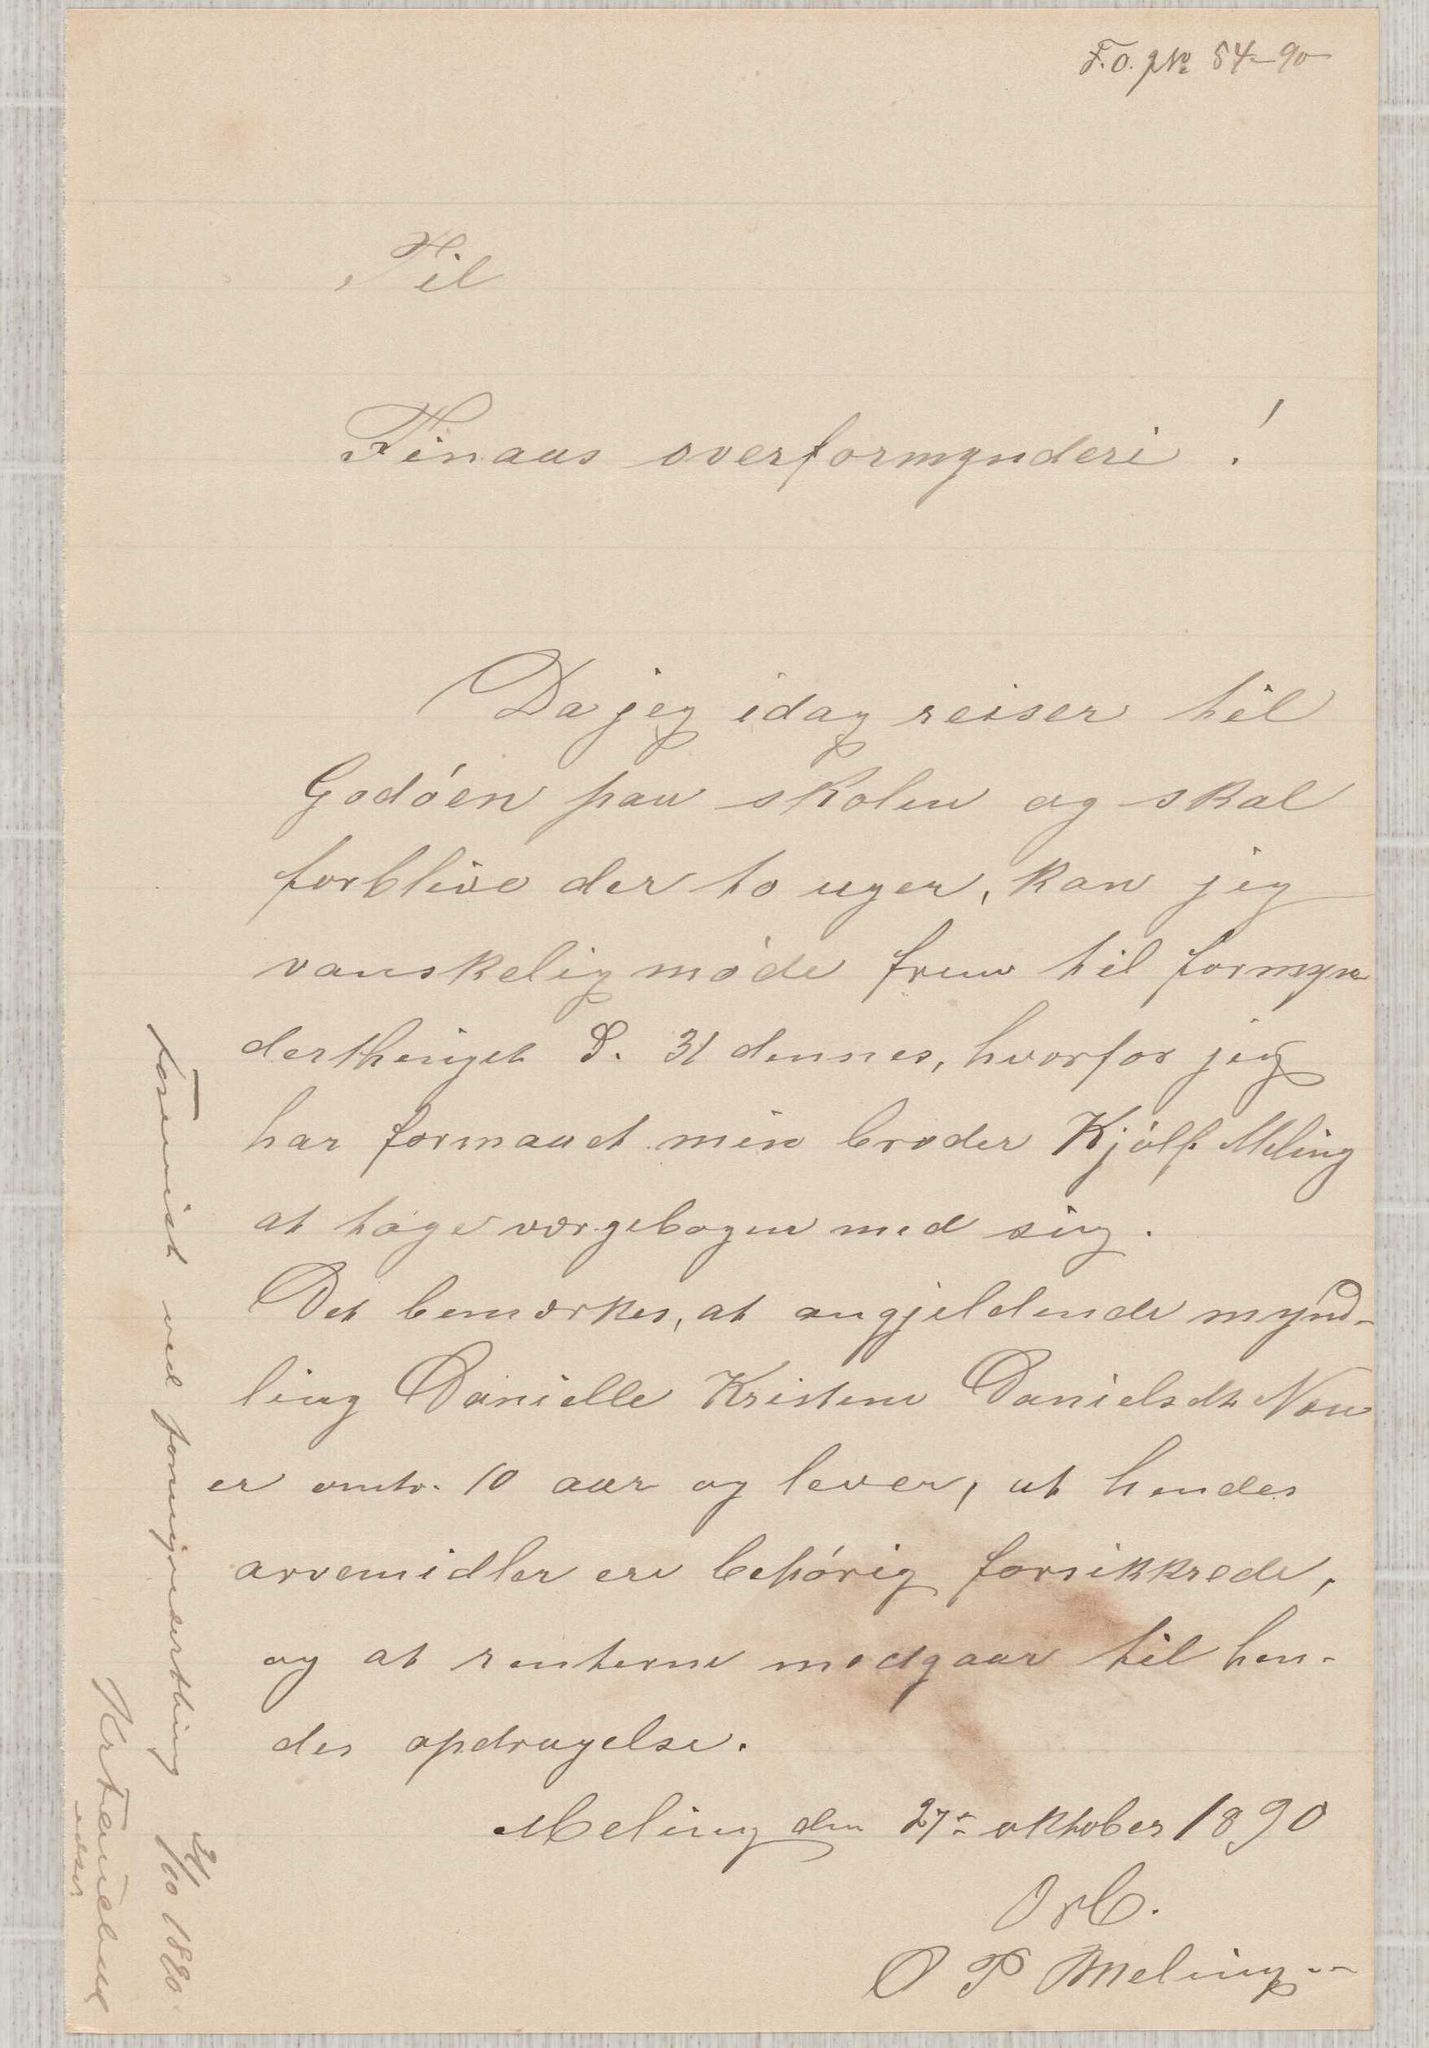 F.O. JNo 54-90
Til
Finaas overformynderi!
Da jeg idag reiser til
Godóen paa skolen og skal
forblive der to uger, kan jeg
vanskelig móde frem til formyn
derthinget d. 31 dennes, hvorfor jeg
har formaaet min broder Kjólf Meling
at tage værgebogen med sig.
Det bemærkes, at angjeldende mynd-
ling Danielle Kristine Danielsdt
er omtr. 10 aar og lever, at hendes
arvemidler ere behórig forsikkrede,
og at renterne medgaar til hen-
des opdragelse.
Meling den 27de oktober 1890
Ærb.
O P Meling
Forevist ved formynderthing 31/10 1890